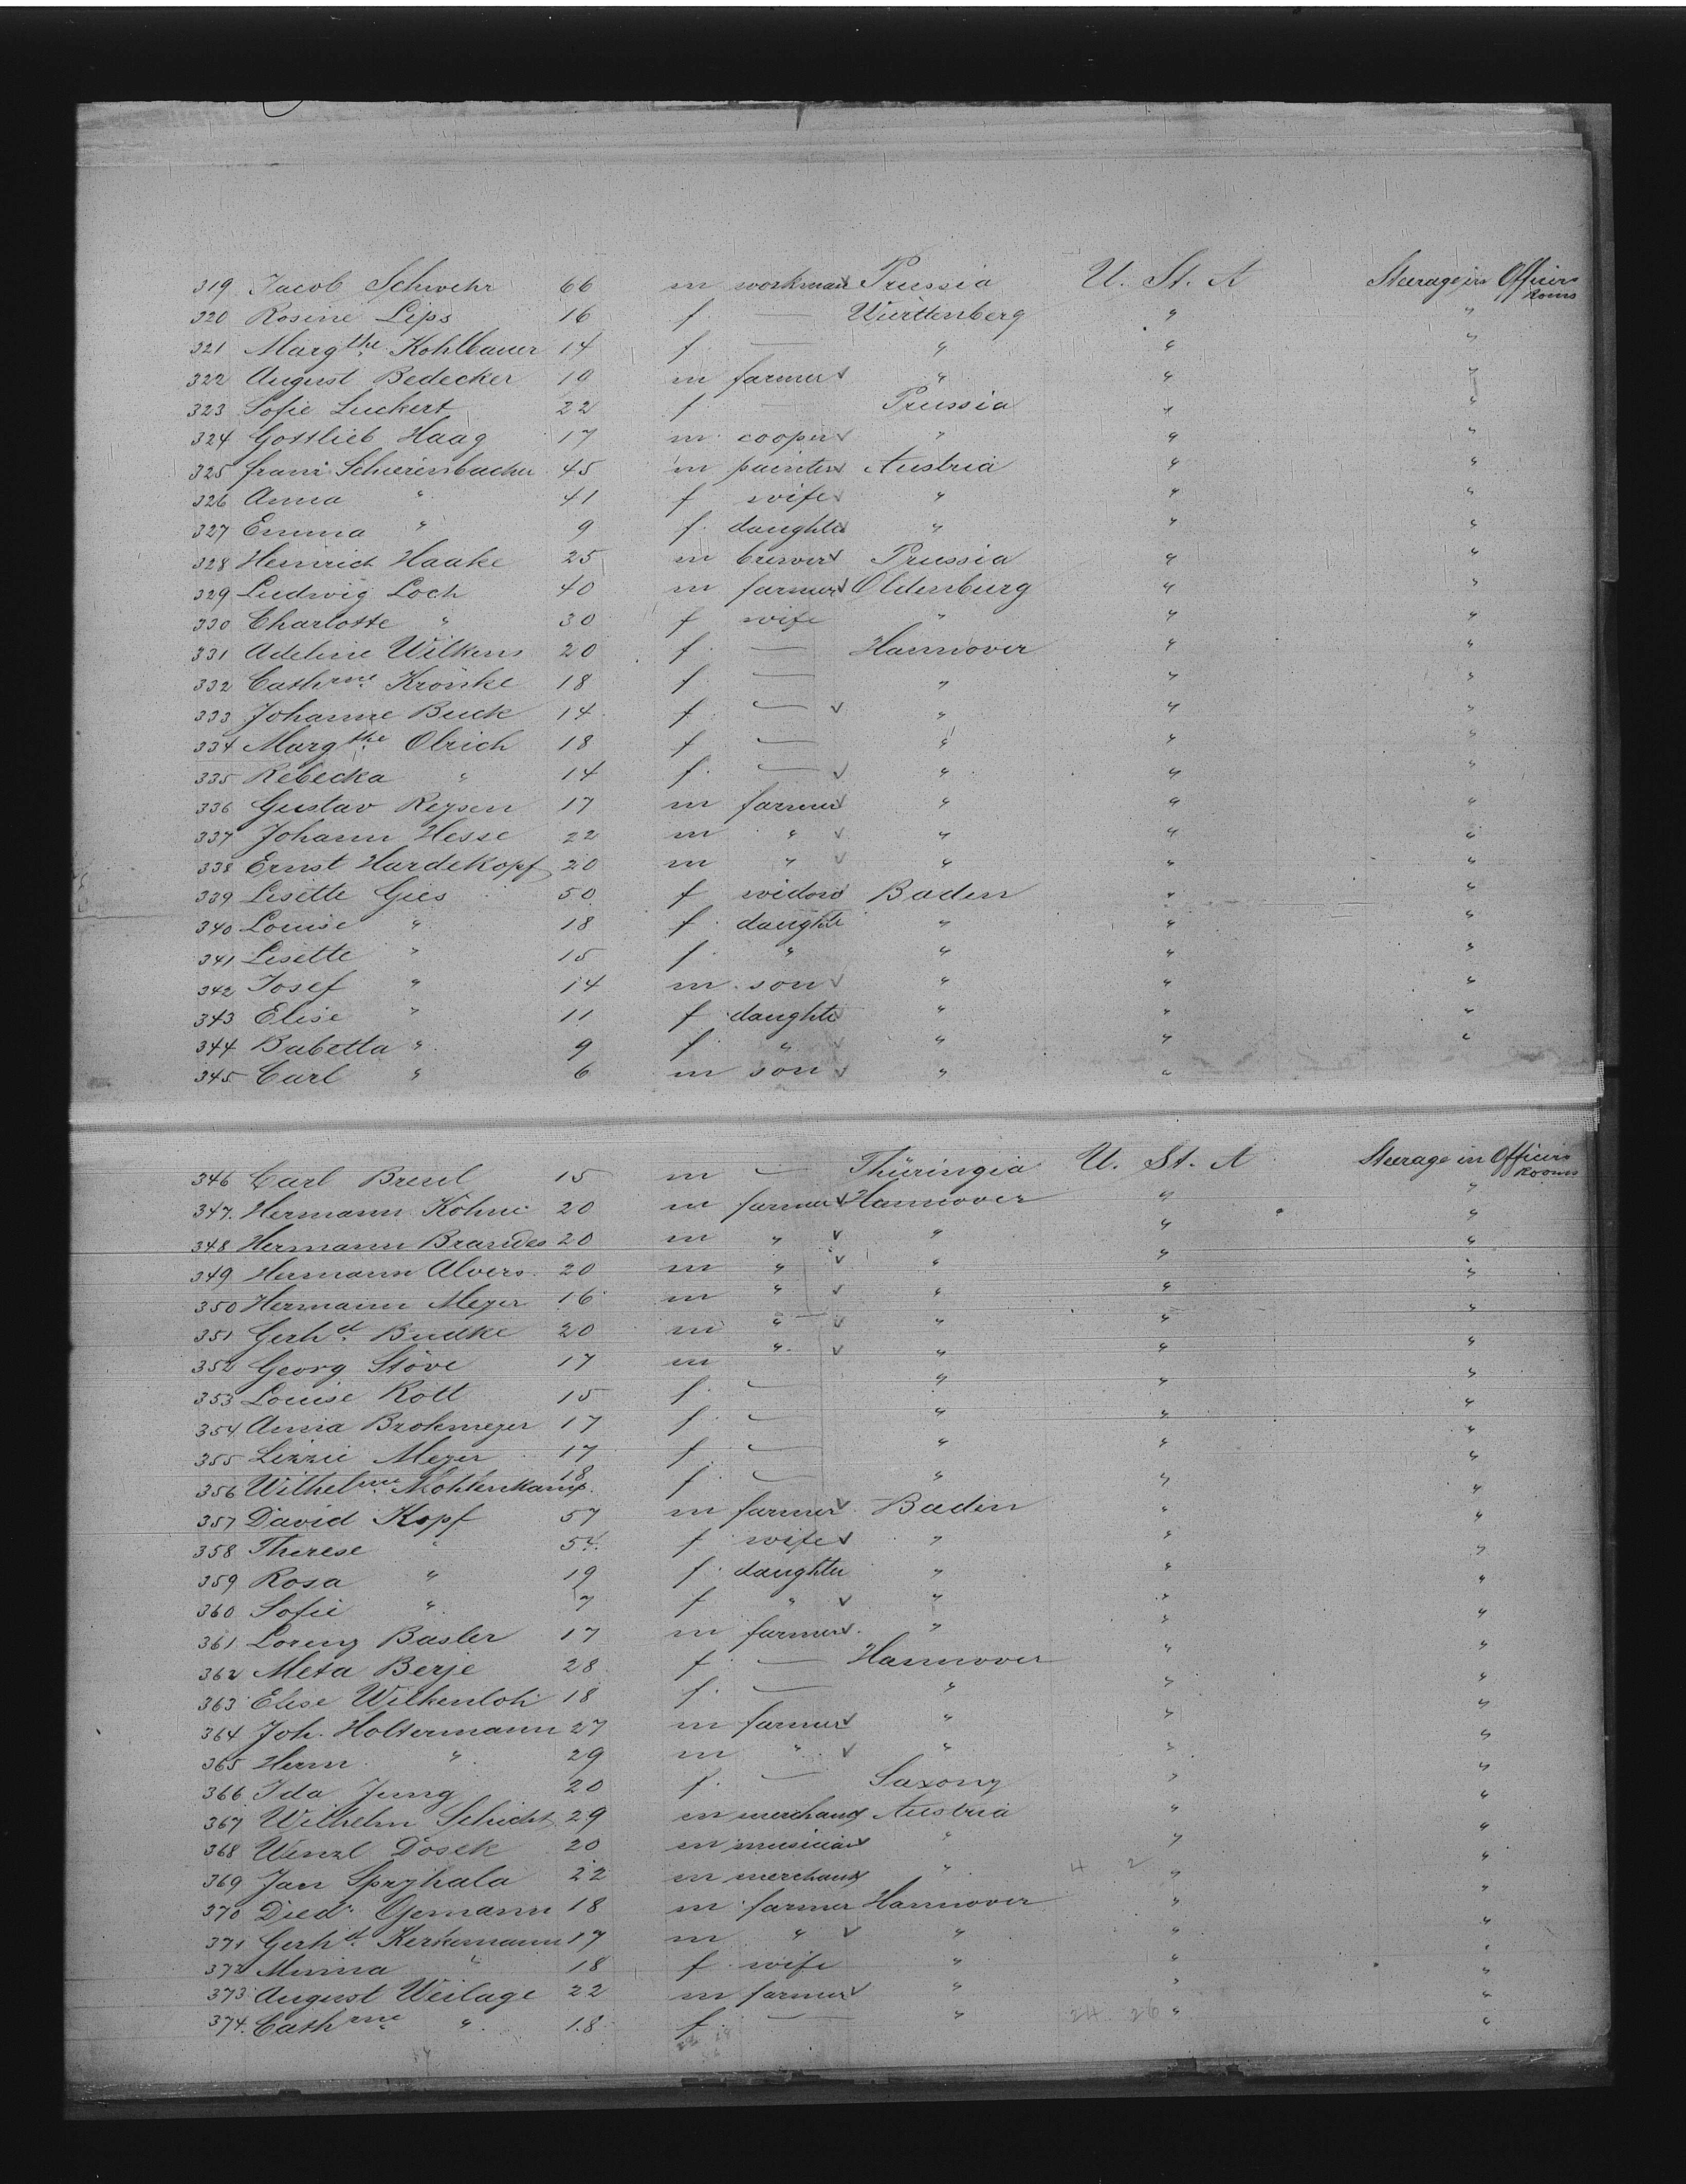 319 Jacob Schwehr 66 m workman Prussia U. St. A Steerage in Officers Rooms
320 Rosine Lips 16 f — Württenberg " "
321 Margthe Kohlbauer 14 f — " " "
322 August Bedecker 19 m farmer " " "
323 Sofie Luckert 22 f — Prussia " "
324 Gottlieb Haag 17 m cooper " " "
325 Franz 45 m painter Austria " "
326 Anna " 41 f wife " " "
327 Emma " 9 f daughter " " "
328 Heinrich Haake 25 m brewer Prussia " "
329 Ludwig Loch 40 m farmer Oldenburg " "
330 Charlotte " 30 f wife " " "
331 Adeline Wilkens 20 f — Hannover " "
332 Cathrne Krönke 18 f — " " "
333 Johanne Buck 14 f — " " "
334 Margthe Olrich 18 f — " " "
335 Rebecka " 14 f — " " "
336 Gustav Reysen 17 m farmer " " "
337 Johann Hesse 22 m " " " "
338 Ernst Hardekopf 20 m " " " "
339 Lisette Gies 50 f widow Baden " "
340 Louise " 18 f daughte " " "
341 Lisette " 15 f " " " "
342 Josef " 14 m son " " "
343 Elise " 11 f daughte " " "
344 Babetta " 9 f " " " "
345 Carl " 6 m son " "
346 Carl 15 m — Thüringia U. St. A Steerage in Officers Rooms
347. Hermann Köhne 20 m farmer Hannover " "
348 Hermann Brandes 20 m " " " "
349 Hermann Alvers 20 m " " " "
350 Hermann Meyer 16 m " " " "
351 Gerhd Budke 20 m " " " "
352 Georg Stöve 17 m " " " "
353 Louise Rott 15 f — " " "
354 Anna Brokmeyer 17 f — " " "
355 Lizzie Meyer 17 f — " " "
356 Wilhelme Mohlenkamp 18 f — " " "
357 David Kopf 57 m farmer Baden " "
358 Therese " 54 f wife " " "
359 Rosa " 19 f daughter " " "
360 Sofie " 7 f " " " "
361 Lorenz Basler 17 m farmer " " "
362 Meta Berje 28 f — Hannover " "
363 Elise Wilkenloh 18 f — " " "
364 Joh. Holtermann 27 m farmer " " "
365 Herm " 29 m " " " "
366 Ida Jung 20 f — Saxony " "
367 Wilhelm Schicht 29 m merchant Austria " "
368 Wenzl Dosek 20 m musician " " "
369 Jan Spryhala 22 m merchant " 4 2 " "
370 Died. 18 m farmer Hannover " "
371 Gerhd Kerkemann 17 m " " " "
372 Minna " 18 f wife " " "
373 August Weilage 22 m farmer " " "
374. Cathrne " 18 f — " 24 26 " "